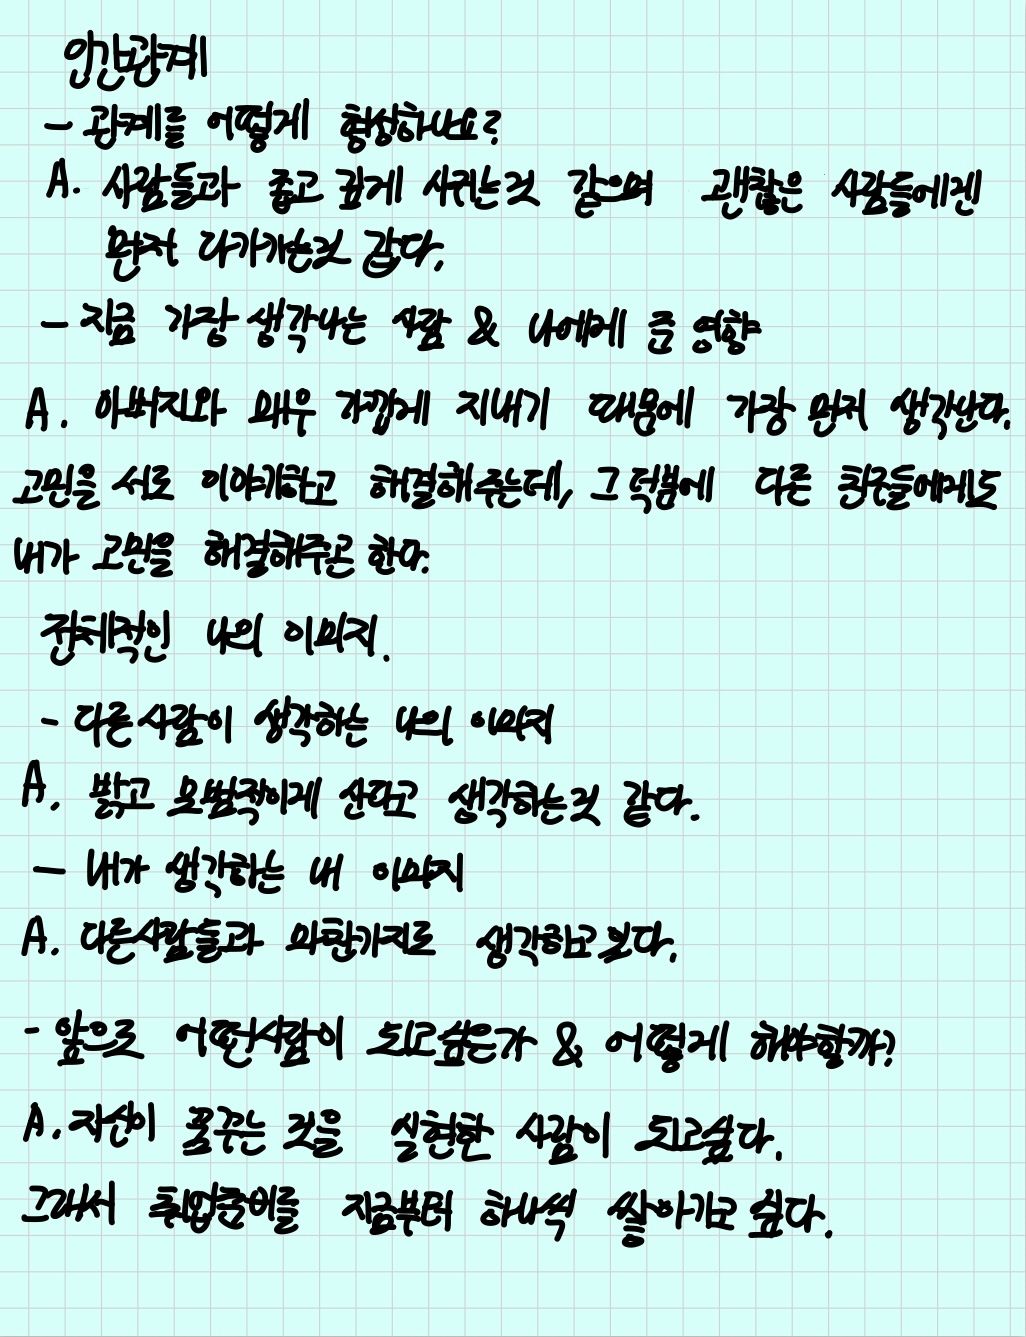 인간관계
- 관계를 어떻게 형성하나요?
A. 사람들과 좁고 깊게 사귀는것 같으며 괜찮은 사람들에겐
먼저 다가가는것 같다.
- 지금 가장 생각나는 사람 & 나에게 준 영향
A. 아버지와 매우 가깝게 지내기 때문에 가장 먼저 생각난다.
고민을 서로 이야기하고 해결해주는데, 그 덕분에 다른 친구들에게도
내가 고민을 해결해주곤 한다.
전체적인 나의 이미지.
- 다른사람이 생각하는 나의 이미지
A. 밝고 모범적이게 산다고 생각하는것 같다.
- 내가 생각하는 내 이미지
A. 다른사람들과 마찬가지로 생각하고있다.
- 앞으로 어떤사람이 되고싶은가 & 어떻게 해야할까?
A. 자신이 꿈꾸는 것을 실현한 사람이 되고싶다.
그래서 취업준비를 지금부터 하나씩 쌓아가고 싶다.